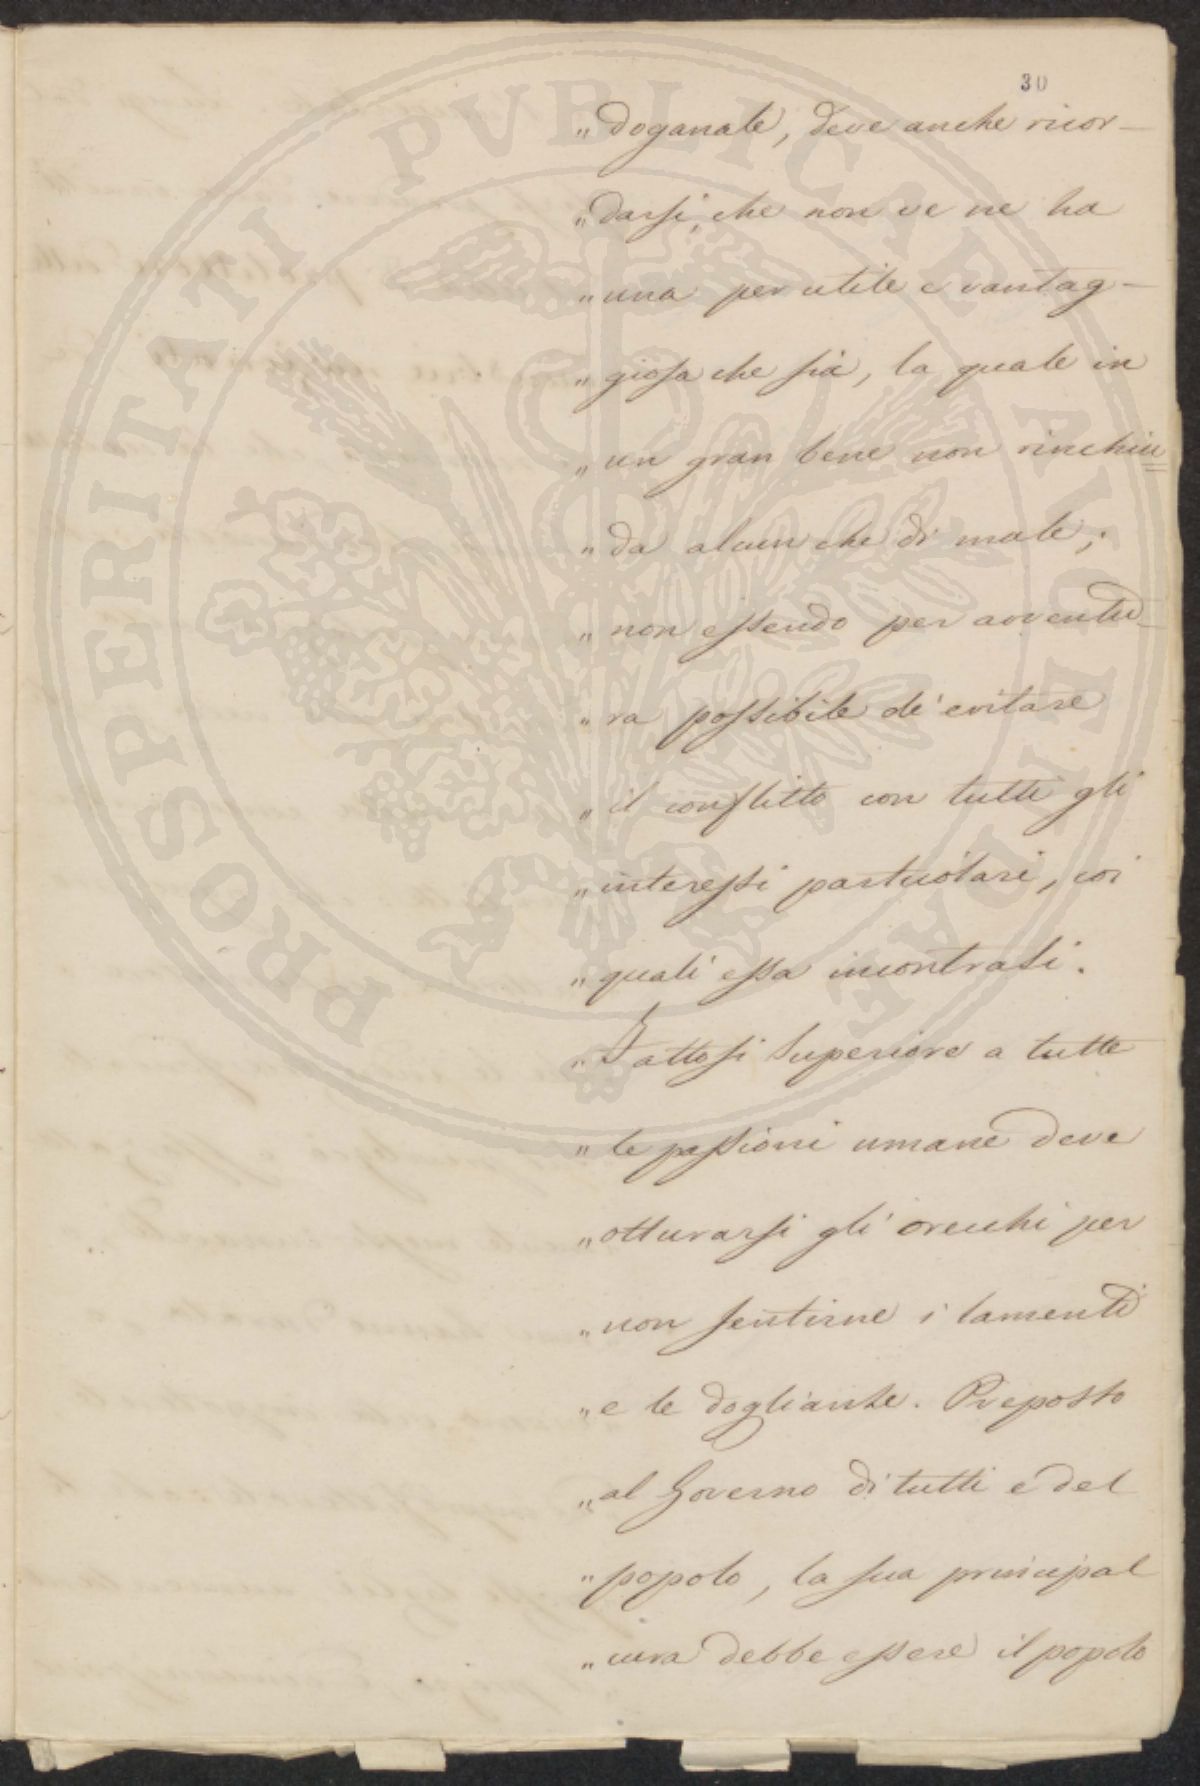 30
„ doganale, deve anche ricor–
„ darsi, che non ve ne ha
„ una per utile e vantag–
„ giosa che sia, la quale in
„ un gran bene non rinchiu=
„ da alcun che di male;
„ non essendo per avventu–
„ ra possibile de' evitare
„ il conflitto con tutti gli
„ interessi particolari, coi
„ quali essa incontrasi.
„ Fattosi Superiore a tutte
„ le passioni umane deve
„ otturarsi gli orecchi per
„ non sentirne i lamenti
„ e le doglianze. Preposto
„ al Governo di tutti e del
„ popolo, la sua principal
„ cura debbe essere il popolo
PROSPERITATI PVBLICAE AVGENDAE